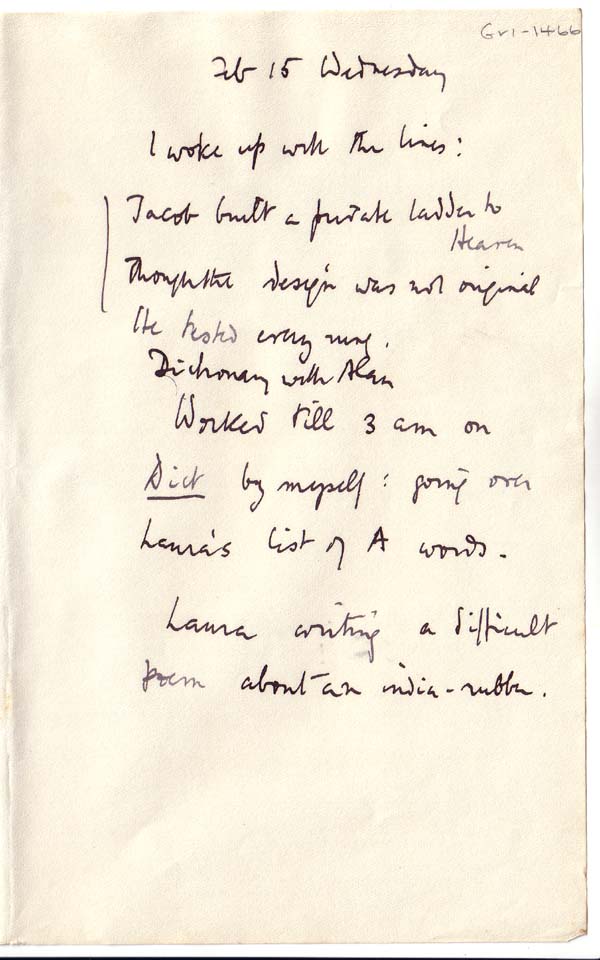 Gri-1466
Feb 15 Wednesday
I woke up with the lines:
Jacob built a private ladder to
Heaven
Though the design was not original
He tested every rung.
Dictionary with Alan
Worked till 3 am on
Dict by myself: going over
Laura's list of A words.
Laura writing a difficult
poem about an india-rubber.